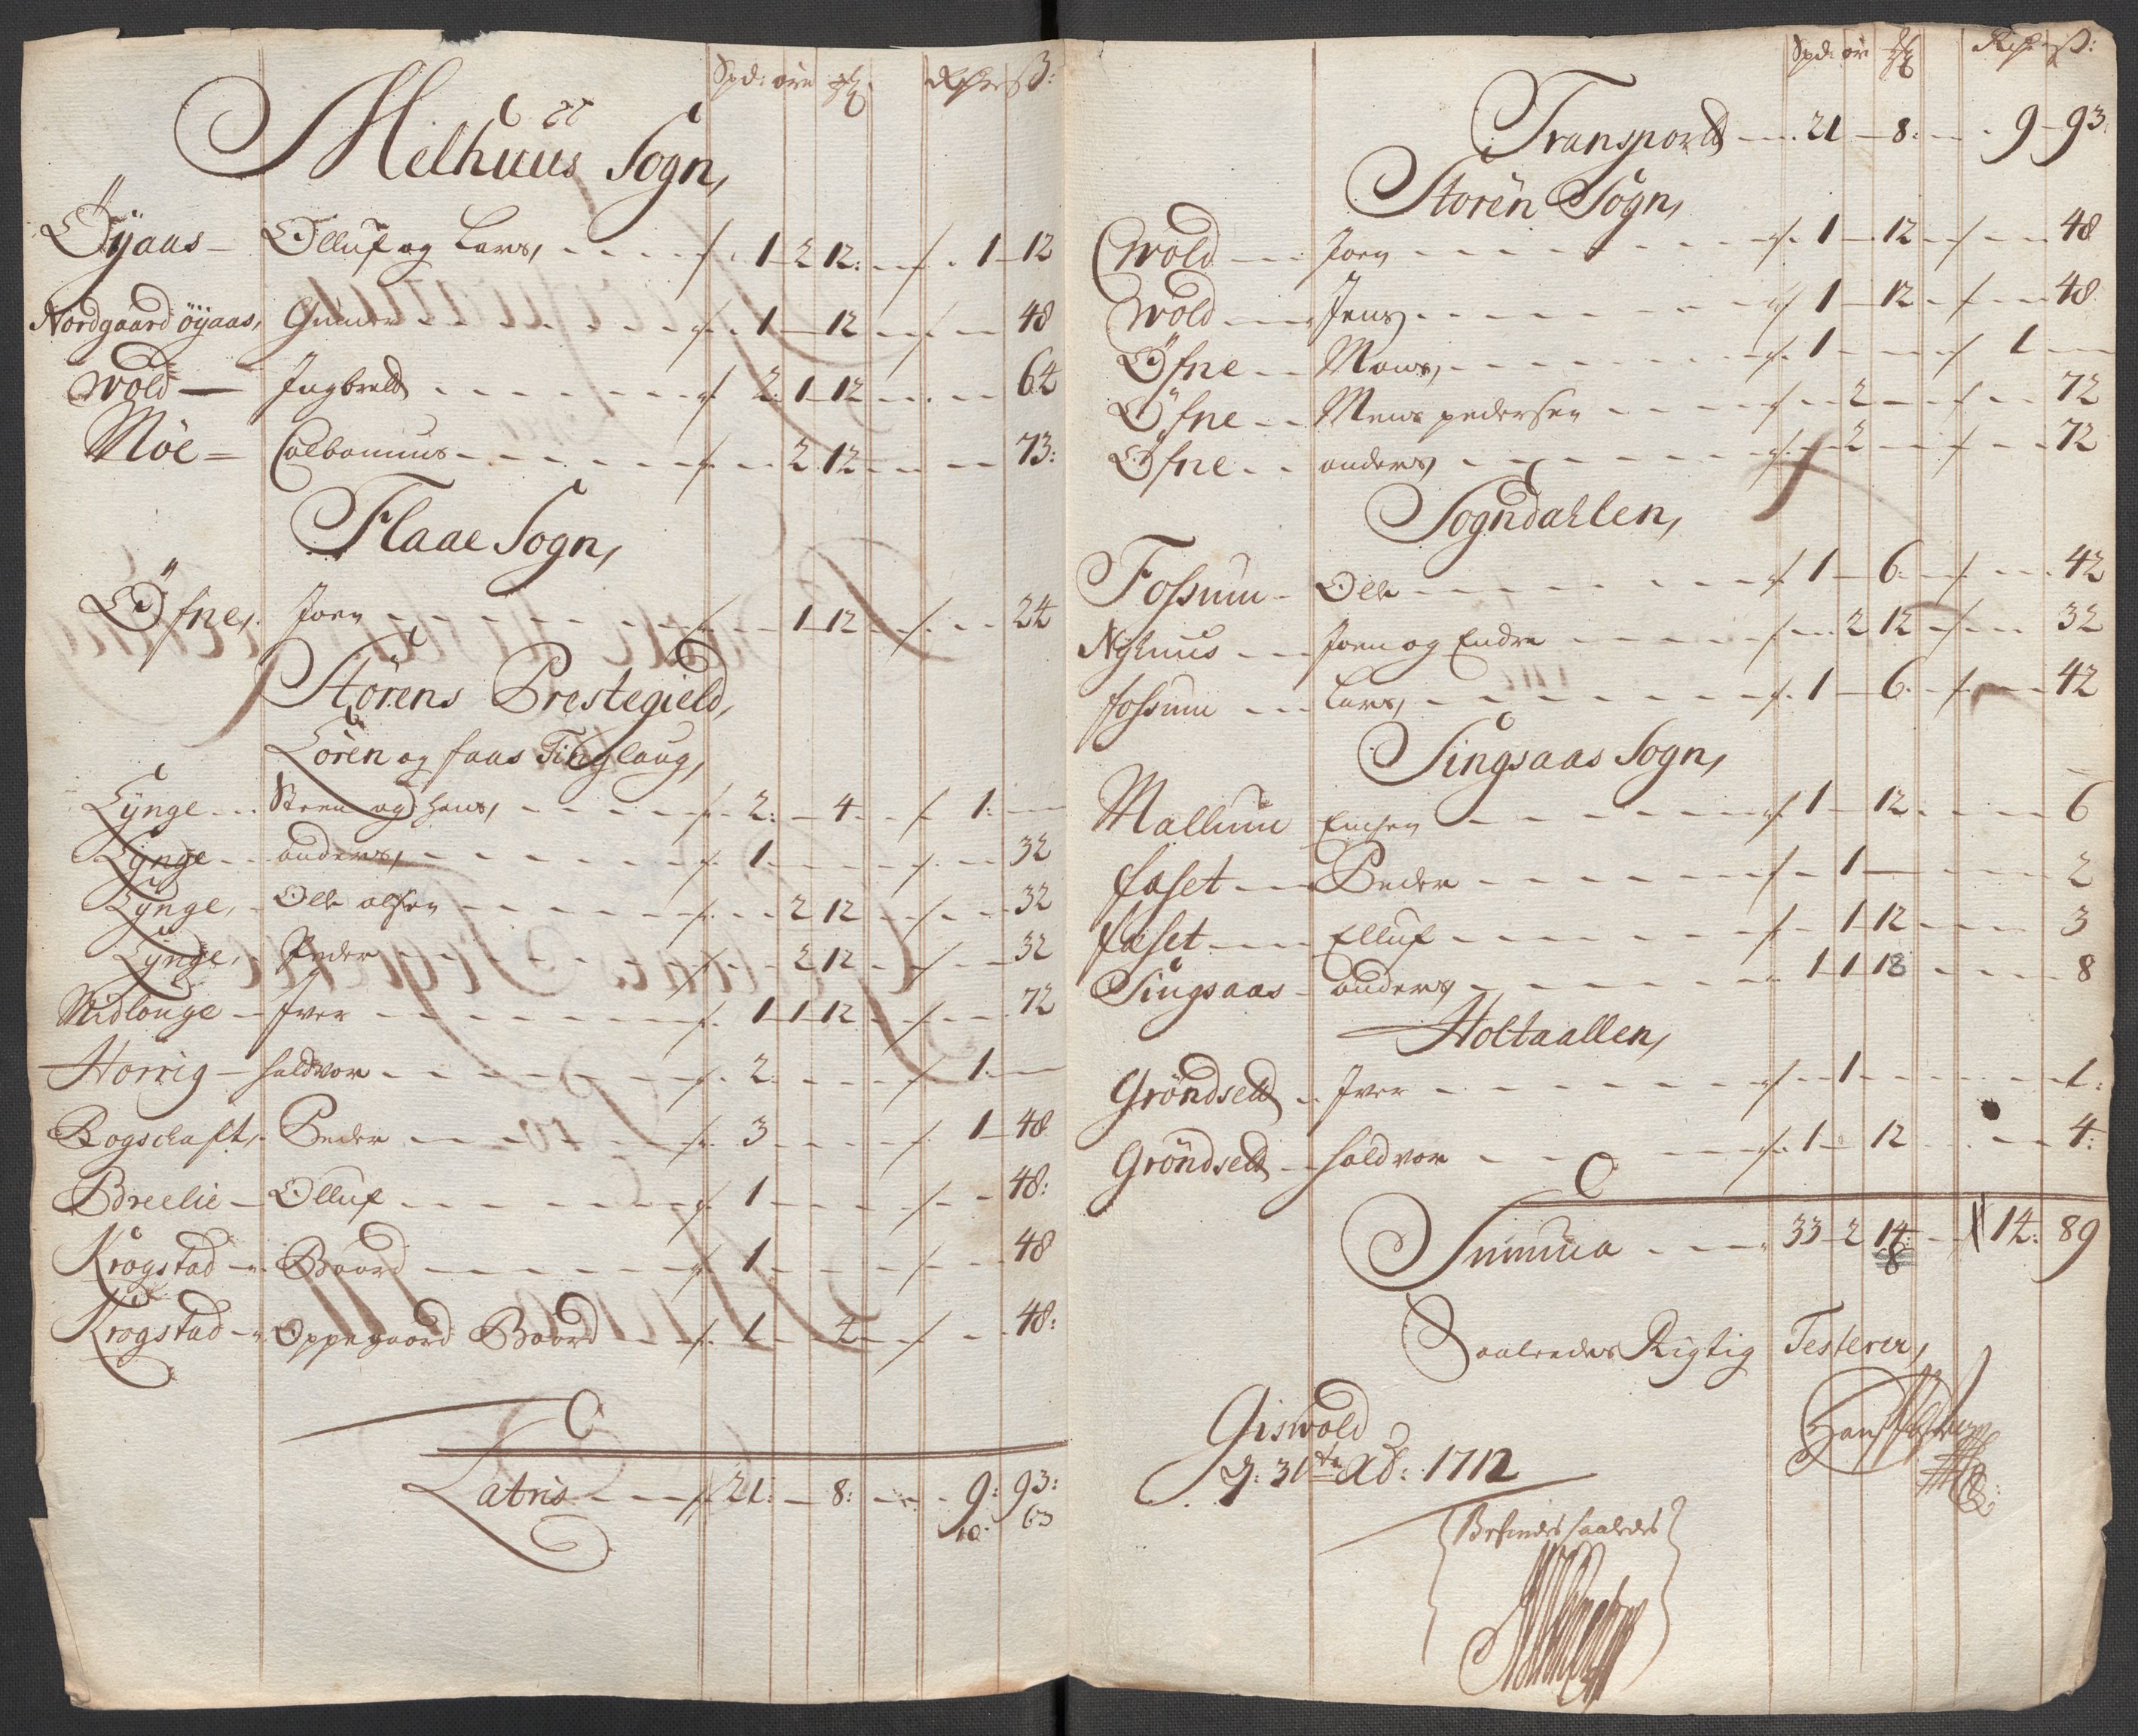 Spd: øre Rdr ß:
Melhuus Sogn,
Øÿaas – Olluf og Lars, 1 2 12: 1 12
Nordgaard öÿaas, Gunner 1 – 12 48
Wold — Ingbrett 2: 1 12 64
Möe = Colbannus 2 12 73:
Flaae Sogn,
Öfne, Joen 1 12 24
Störens Prestegield,
Sören og faas Tinglaug,
Lÿnge Steen og Hans, 2: – 4 1:
Lÿnge anders, 1 32
Lÿnge, Olle olsen 2 12 32
Lÿnge, Peder 2 12 32
Midlonge – Iver 1 1 12 72
Horrig – Haldvor 2: 1:
Bogschaft, Peder 3 1 48
Breelie – Olluf 1 48:
Krogstad Baard 1 48
Krogstad Oppegaard Baard 1 4 48:
Latris 21: – 8: 9: 93:
10: 63
Spd: øre Rdr ß:
Transport 21 – 8: 9 – 93:
Storen Sogn,
Wold Joen 1 – 12 48
Wold Jens 1 – 12 48
Öfne Mons, 1 1
Öfne Mons pedersen 2 72
Öfne anders 2 72
Sogndahlen,
Fossum – Olle 1 – 6: 42
Nyhuus Joen og Endre 2 12 32
fossum Lars, 1 – 6 42
Singsaas Sogn,
Mallum 1 – 12 6
faset Peder 1 2
faset Elluf 1 12 3
Singsaas anders 1 1 18 8
Holtaallen,
Gröndsett Iver 1 1:
Gröndsett Haldvor 1 – 12 4:
Summa 33 – 2 14: 14: 89
8
Saaledes Rigtig Testerer,
Giswold
d: 31te Xb: 1712
Befindes saaledes